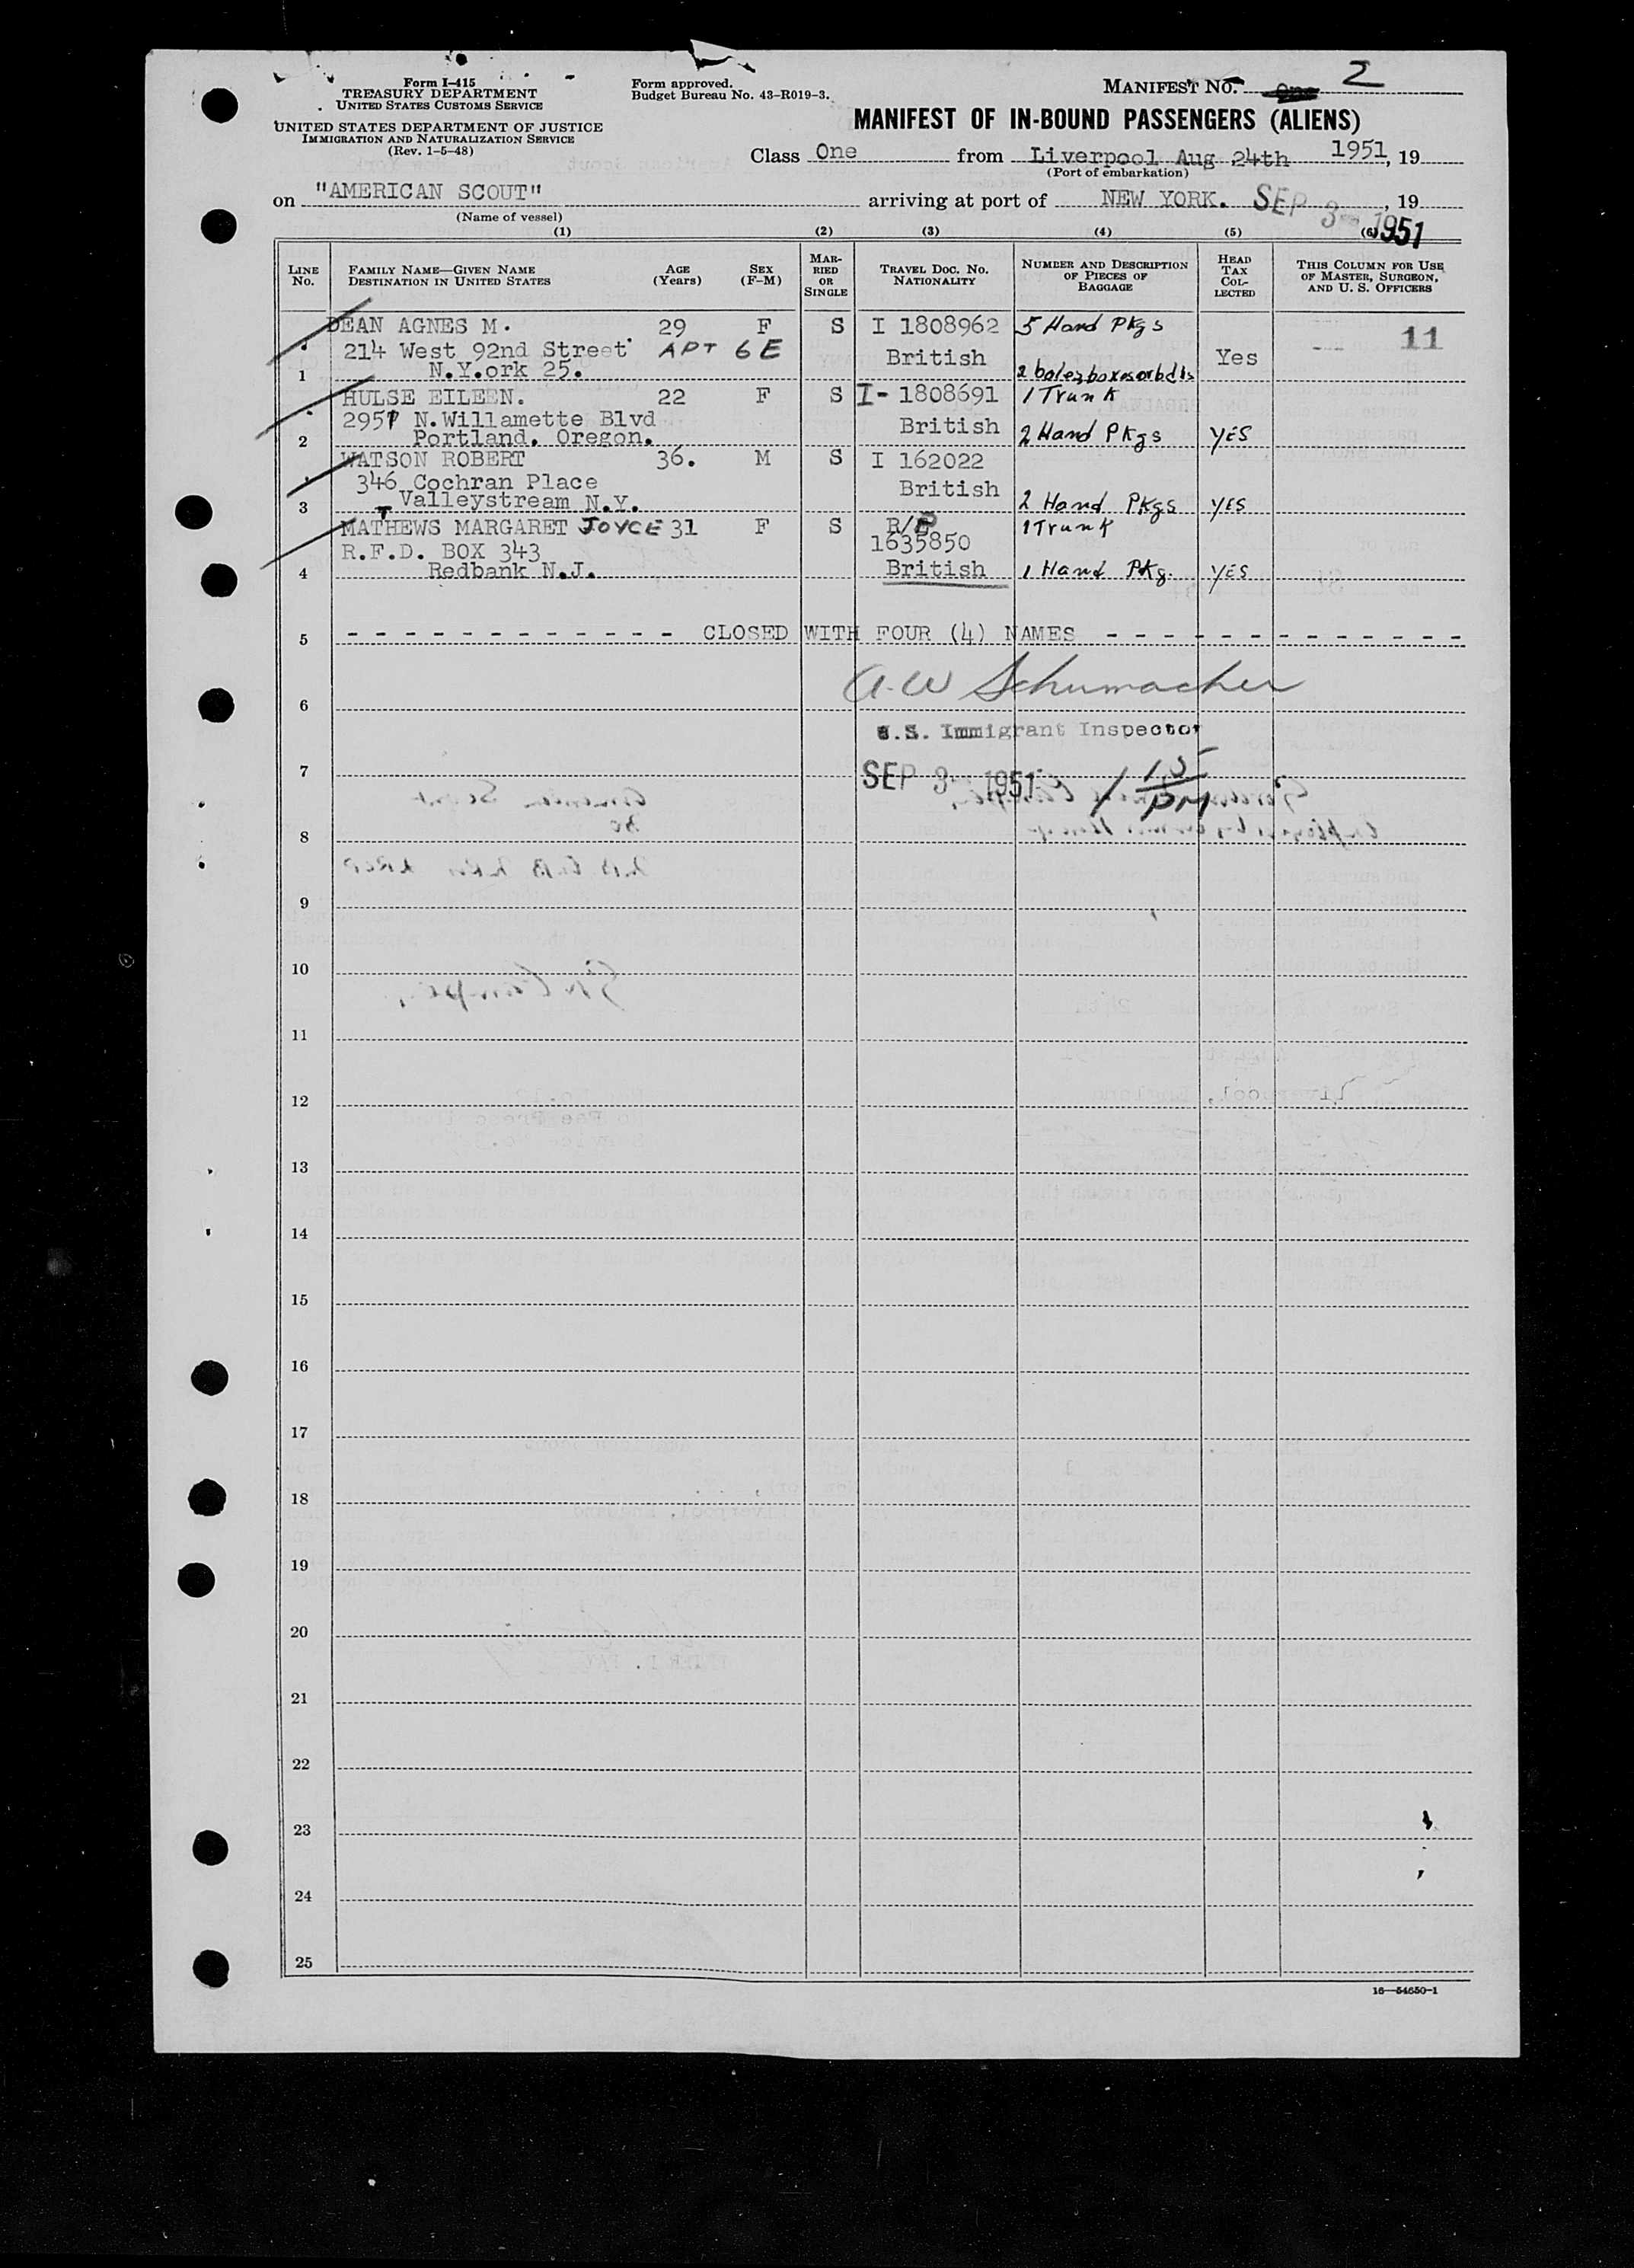 Form I-415
TREASURY DEPARTMENT
UNITED STATES CUSTOMS SERVICE
UNITED STATES DEPARTMENT OF JUSTICE
IMMIGRATION AND NATURALIZATION SERVICE
(Rev. 1-5-48)
Form approved.
Budget Bureau No. 43-R019-3.
MANIFEST NO. One 2
MANIFEST OF IN-BOUND PASSENGERS (ALIENS)
Class One from Liverpool Aug 24th 1951, 19
(Port of embarkation)
on "AMERICAN SCOUT" arriving at port of NEW YORK. SEP 3 - 1951, 19
(Name of vessel)
(1) (2) (3) (4) (5) (6)
LINE NO. FAMILY NAME—GIVEN NAME DESTINATION IN UNITED STATES AGE (Years) SEX (F-M) MARRIED OR SINGLE TRAVEL DOC. NO. NATIONALITY NUMBER AND DESCRIPTION OF PIECES OF BAGGAGE HEAD TAX COLLECTED THIS COLUMN FOR USE OF MASTER, SURGEON, AND U. S. OFFICERS
DEAN AGNES M. 29 F S I 1808962 5 Hand Pkgs 11
214 West 92nd Street APT 6E British Yes
1 N.Y.ork 25. 2
HULSE EILEEN. 22 F S I- 1808691 1 Trunk
2957 N.Willamette Blvd British
2 Portland. Oregon. 2 Hand Pkgs YES
WATSON ROBERT 36. M S I 162022
346 Cochran Place British
3 Valleystream N.Y. 2 Hand Pkgs YES
MATHEWS MARGARET JOYCE 31 F S R/P 1 Trunk
T
R.F.D. BOX 343 1635850
4 Redbank N.J. British 1 Hand Pkg. YES
5 - - - - - - - - - - - - CLOSED WITH FOUR (4) NAMES - - - - - - - - - - - - -
A.W Schumacher
6
U.S. Immigrant Inspector
7 SEP 3 - 1951 1 15/PM
8
9
10
11
12
13
14
15
16
17
18
19
20
21
22
23
24
25
16—54650-1